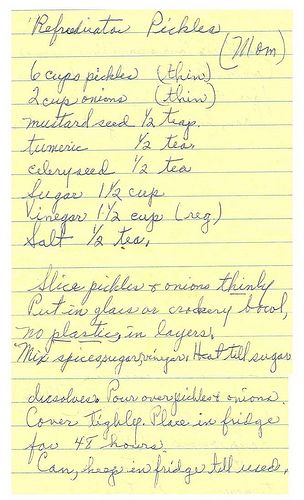 Refridirator Pickles
(Mom)
6 cups pickles (thin)
2 cup onions (thin)
mustard seed 1/2 teap.
tumeric 1/2 tea.
celery seed 1/2 tea
Sugar 1 1/2 cup
Vinegar 1 1/2 cup (reg)
Salt 1/2 tea.
Slice pickles & onions thinly
Put in glass or crockery bowl,
no plastic, in layers.
Mix spices, sugar, vinegar. Heat till sugar
dissolves. Pour over pickles & onions.
Cover tighly. Place in fridge
for 48 hours.
Can, keep in fridge till used.